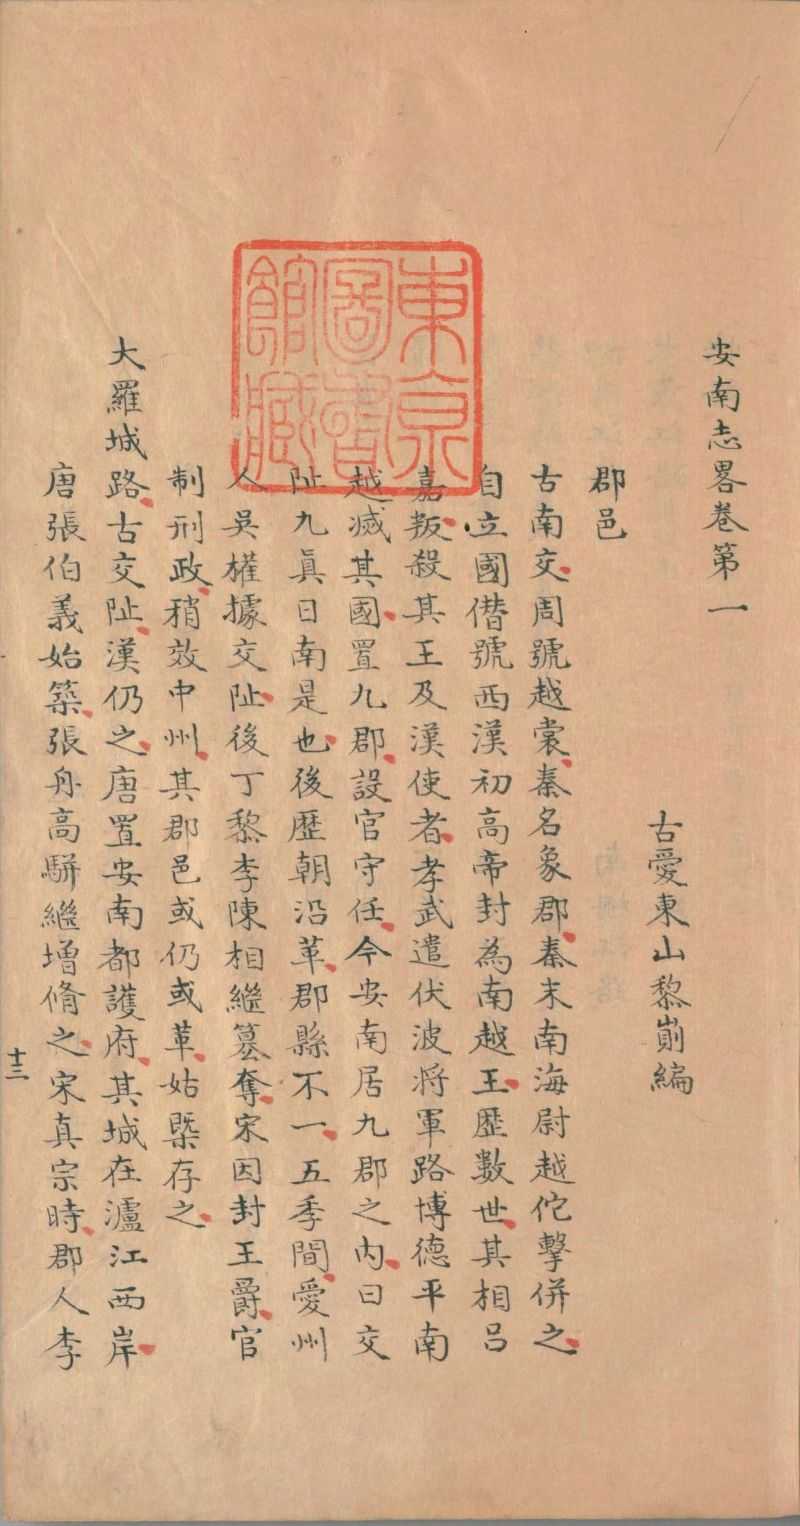 安南志畧卷第一
古愛東山黎崱編
郡邑
古南交周號越裳秦名象郡秦末南海尉越佗擊併之
自立國僣號西漢初高帝封為南越王歷數世其相吕
嘉叛殺其王及漢使者孝武遣伏波將軍路博德平南
越滅其國置九郡設官守任今安南居九郡之内曰交
阯九真日南是也後歷朝沿革郡縣不一五季間愛州
人吳權據交阯後丁黎李陳相繼簒奪宋因封王爵官
制刑政稍效中州其郡邑或仍或革姑槩存之
大羅城路古交阯漢仍之唐置安南都護府其城在瀘江西岸
唐張伯義始築張舟高駢繼增脩之宋真宗時郡人李
十三
東京
圖書
館藏